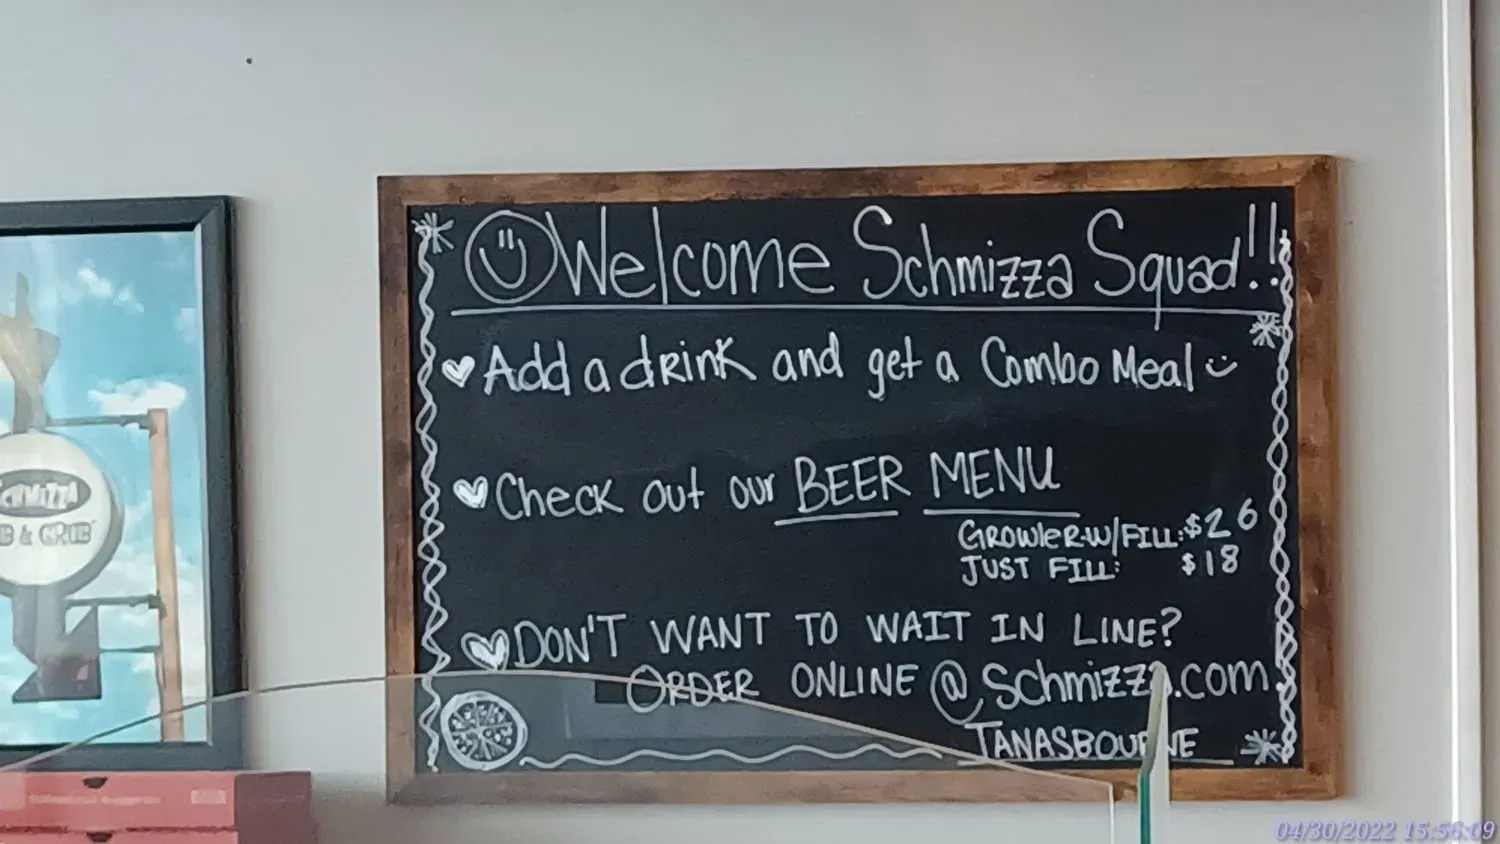 Welcome Schmizza Squad!!
Add a drink and get a Combo Meal
Check out our BEER MENU
GROWlER W/FILL: $26
JUST FILL: $18
DON'T WANT TO WAIT IN LINE?
ORDER ONLINE @ Schmizza.com
TANASBOURNE
SCHMIZZA
B & GRUB
04/30/2022 15:56:09